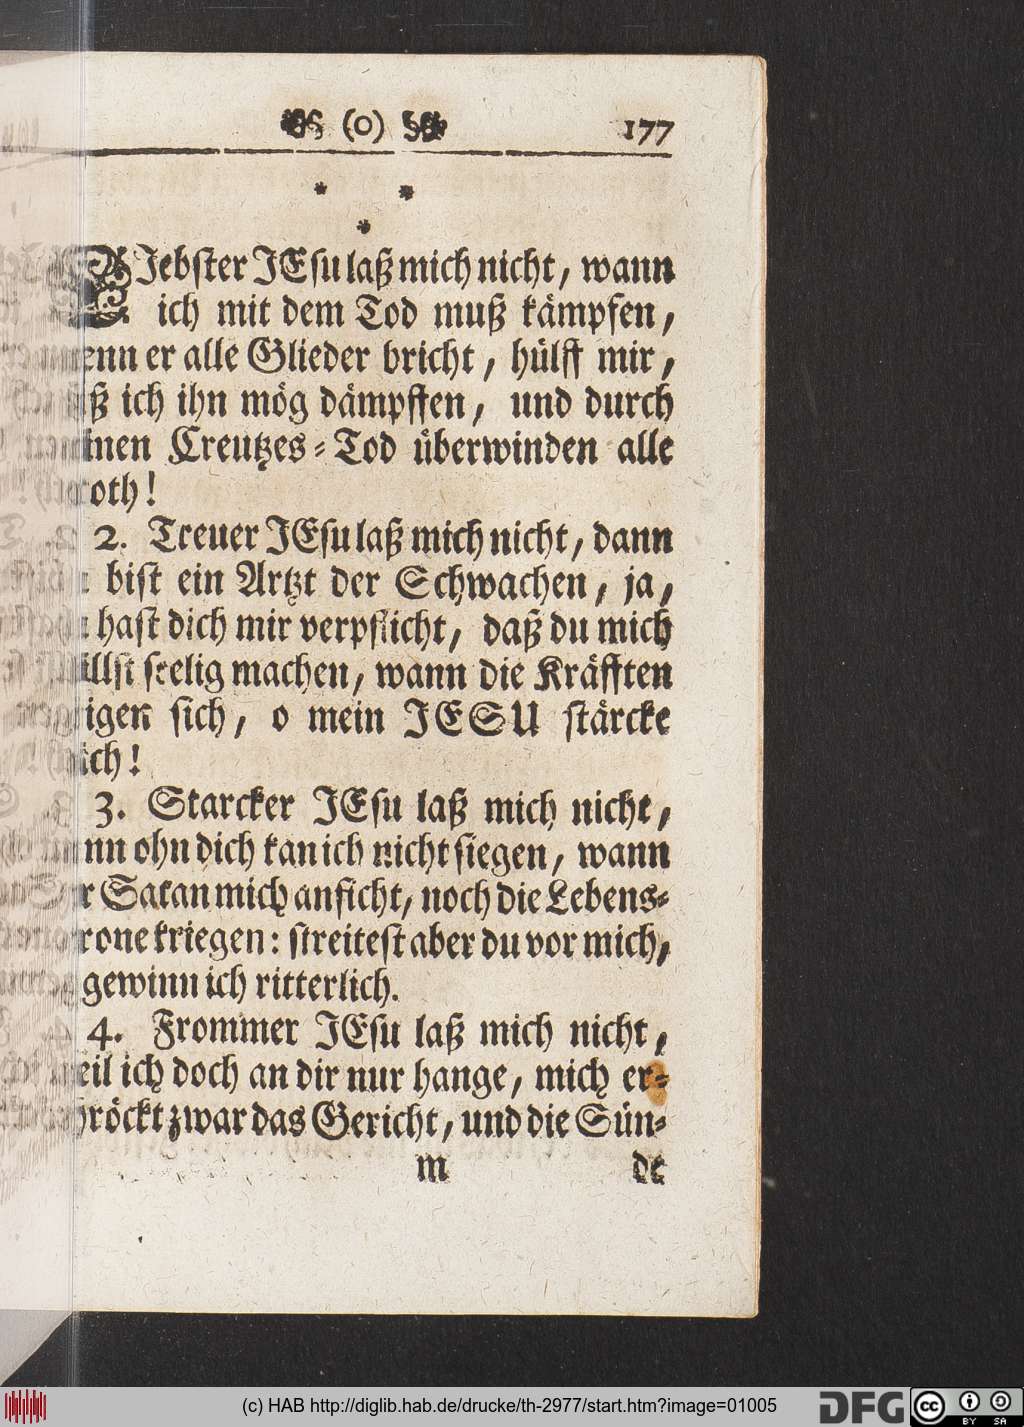 (0) 177
LJebster JEsu laß mich nicht, wann
ich mit dem Tod muß kämpfen,
wenn er alle Glieder bricht, hülff mir,
ich ihn mög dämpffen, und durch
Creutzes-Tod überwinden alle
Noth!
2. Treuer JEsu laß mich nicht, dann
bist ein Artzt der Schwachen, ja,
hast dich mir verpflicht, daß du mich
willst seelig machen, wann die Kräfften
sich, o mein JESU stärcke
mich!
3. Starcker JEsu laß mich nicht,
ohn dich kan ich nicht siegen, wann
der Satan mich anficht, noch die Lebens-
Crone kriegen: streitest aber du vor mich,
gewinn ich ritterlich.
4. Frommer JEsu laß mich nicht,
weil ich doch an dir nur hange, mich er-
schröckt zwar das Gericht, und die Sün-
M de
(c) HAB http://diglib.hab.de/drucke/th-2977/start.htm?image=01005
DFG cc BY SA